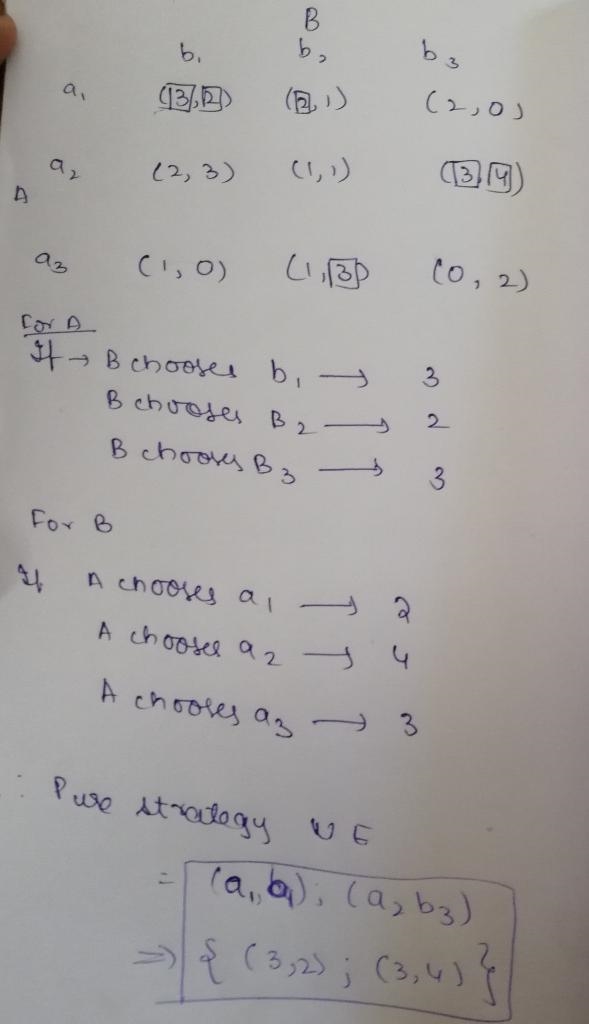 B
b₁ b₂ b₃
a₁ (3,2) (2,1) (2,0)
a₂ (2,3) (1,1) (3,4)
A
a₃ (1,0) (1,3) (0,2)
For A
If → B chooses b₁ → 3
B chooses B₂ → 2
B chooses B₃ → 3
For B
If A chooses a₁ → 2
A chooses a₂ → 4
A chooses a₃ → 3
∴ Pure strategy NE
= (a₁,b₁); (a₂b₃)
⇒ { (3,2); (3,4) }